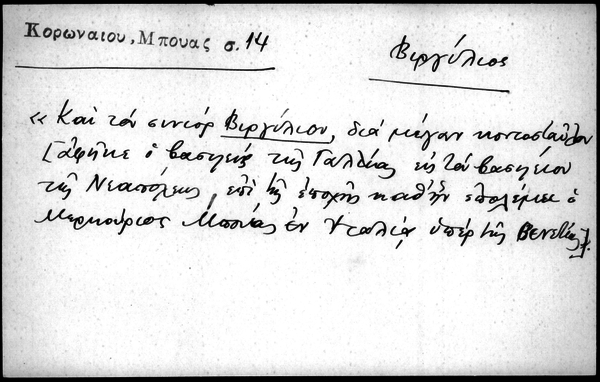 Κορωναιου, Μπουας σ. 14
Βιργύλιος
« Καὶ τὸν σινιὸρ Βιργύλιον, διὰ μέγαν κοντοσταῦλον
[ἀφῆκε ὁ βασιλεὺς τῆς Γαλλίας εἰς τὸ βασίλειον
τῆς Νεαπόλεως, ἐπὶ τῆς ἐποχῆς καθ' ἣν ἐπολέμει ὁ
Μερκούριος Μπούας ἐν Ἰταλίᾳ ὑπὲρ τῆς Βενετίας].